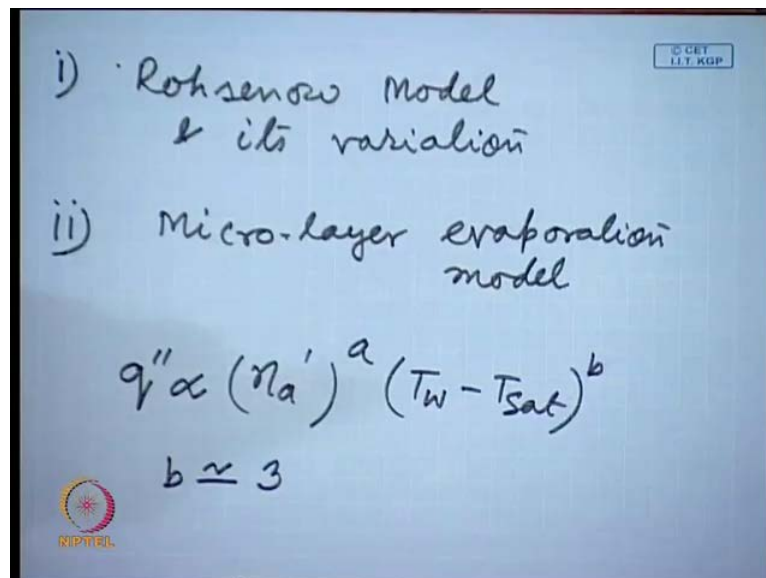 © CET
I.I.T. KGP
i) Rohsenow Model
& its variation
ii) Micro-layer evaporation
model
q'' ∝ (na')^a (Tw - Tsat)^b
b ≃ 3
NPTEL